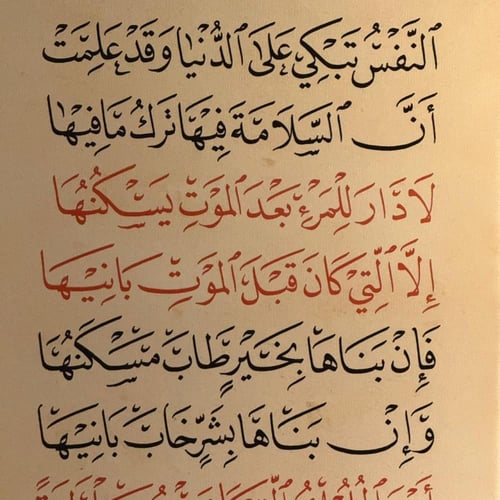 النَّفْسُ تَبْكِي عَلَى الدُّنْيَا وَقَدْ عَلِمَتْ
أَنَّ السَّلَامَةَ فِيهَا تَرْكُ مَا فِيهَا
لَا دَارَ لِلْمَرْءِ بَعْدَ الْمَوْتِ يَسْكُنُهَا
إِلَّا الَّتِي كَانَ قَبْلَ الْمَوْتِ بَانِيْهَا
فَإِنْ بَنَاهَا بِخَيْرٍ طَابَ مَسْكَنُهَا
وَإِنْ بَنَاهَا بِشَرٍّ خَابَ بَانِيْهَا